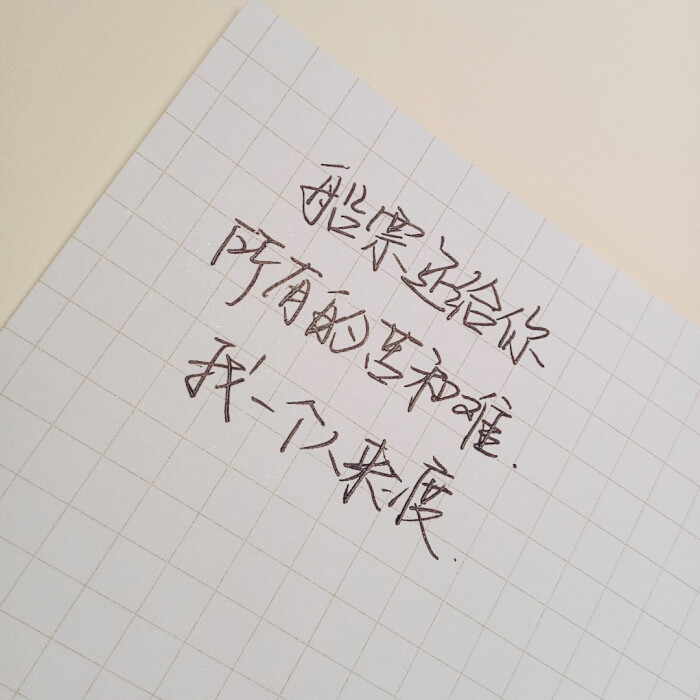 船票还给你
所有的苦和难.
我一个人来度.